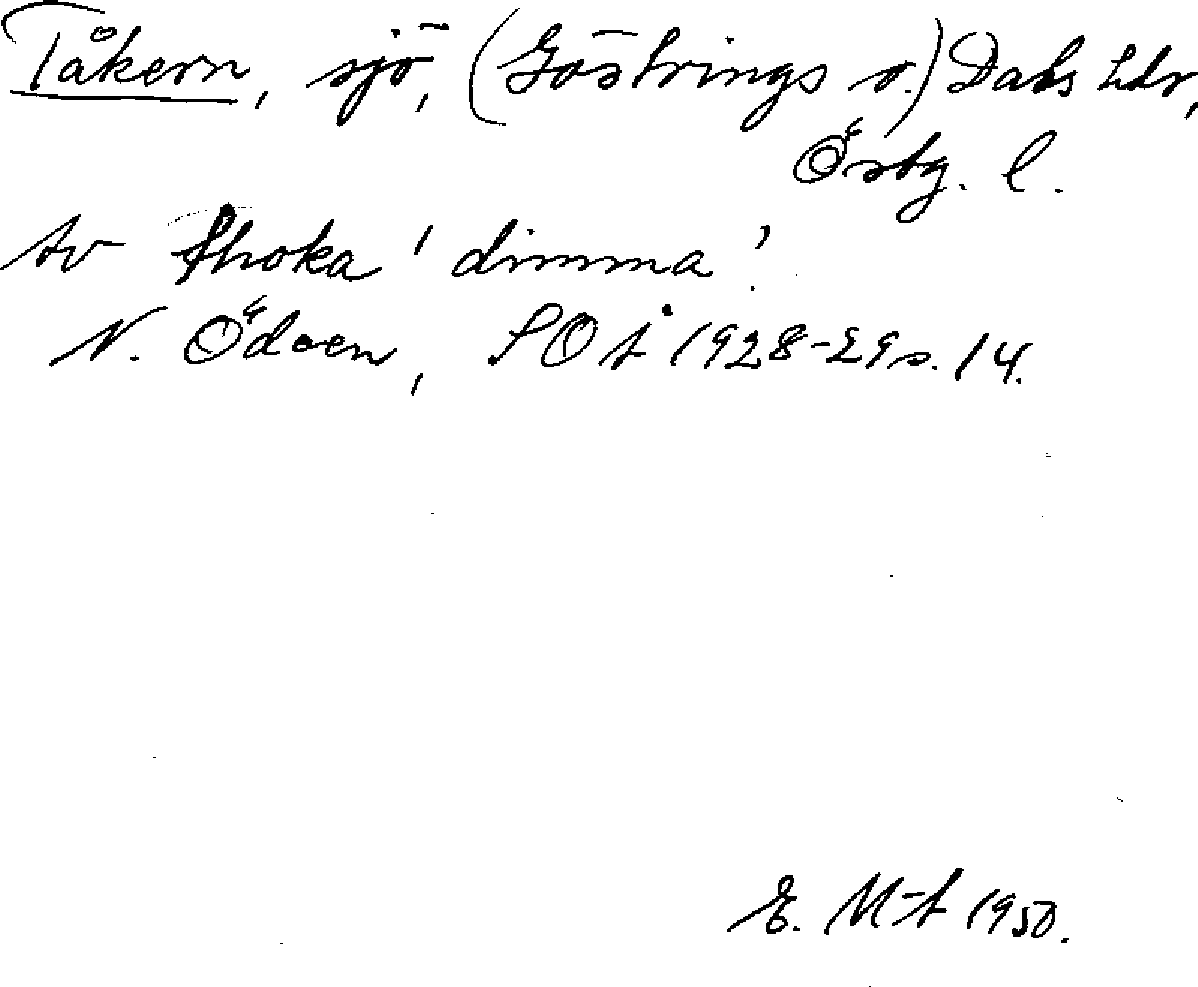 Tåkern, sjö, (Göstrings o.) Dals hdr,
Östg. l.
Av þoka 'dimma'.
N. Ödeen, SOÅ 1928-29 s. 14.
E. M-t 1950.